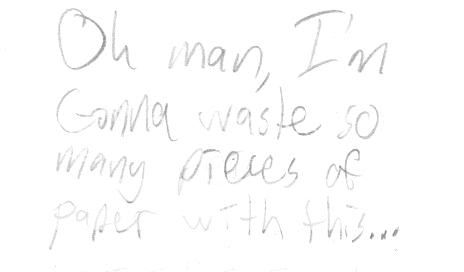 Oh man, I'm
Gonna waste so
many pieces of
paper with this...